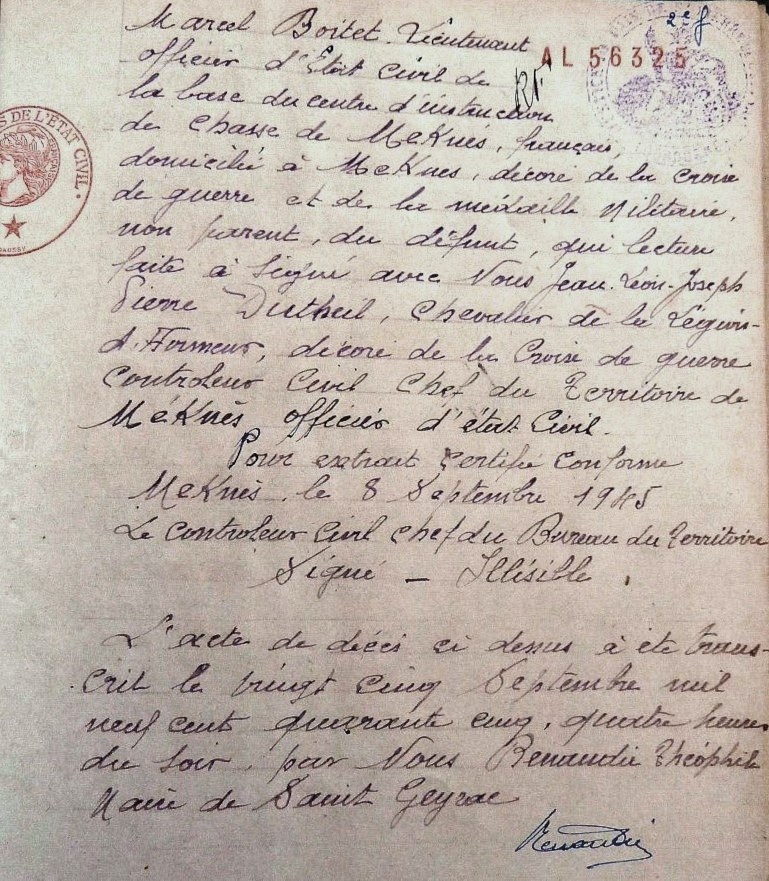 2e f
AL 56325
Marcel Boitet. Lieutenant
officier d'Etat Civil de
la base du centre d'instruction
de Chasse de Meknès, français,
domicilié à Meknes, décoré de la croix
de guerre et de la médaille Militaire,
non parent, du défunt, qui lecture
faite à Signé avec Nous Jean-Léon-Joseph
Pierre Dutheil, Chevalier de la Légion-
d'Honneur, décoré de la Croix de guerre
Controleur Civil Chef du Territoire de
Meknès officier d'état Civil.
Pour extrait Certifié Conforme
Meknès, le 8 Septembre 1945
Le Controleur Civil Chef du Bureau du Territoire
Signé — Illisible.
L'acte de décès ci dessus à été trans-
crit le vingt cinq Septembre mil
neuf cent quarante cinq, quatre heures
du soir, par Nous Renaudie Théophile
Maire de Saint Geyrac
Renaudie
DE L'ETAT CIVIL